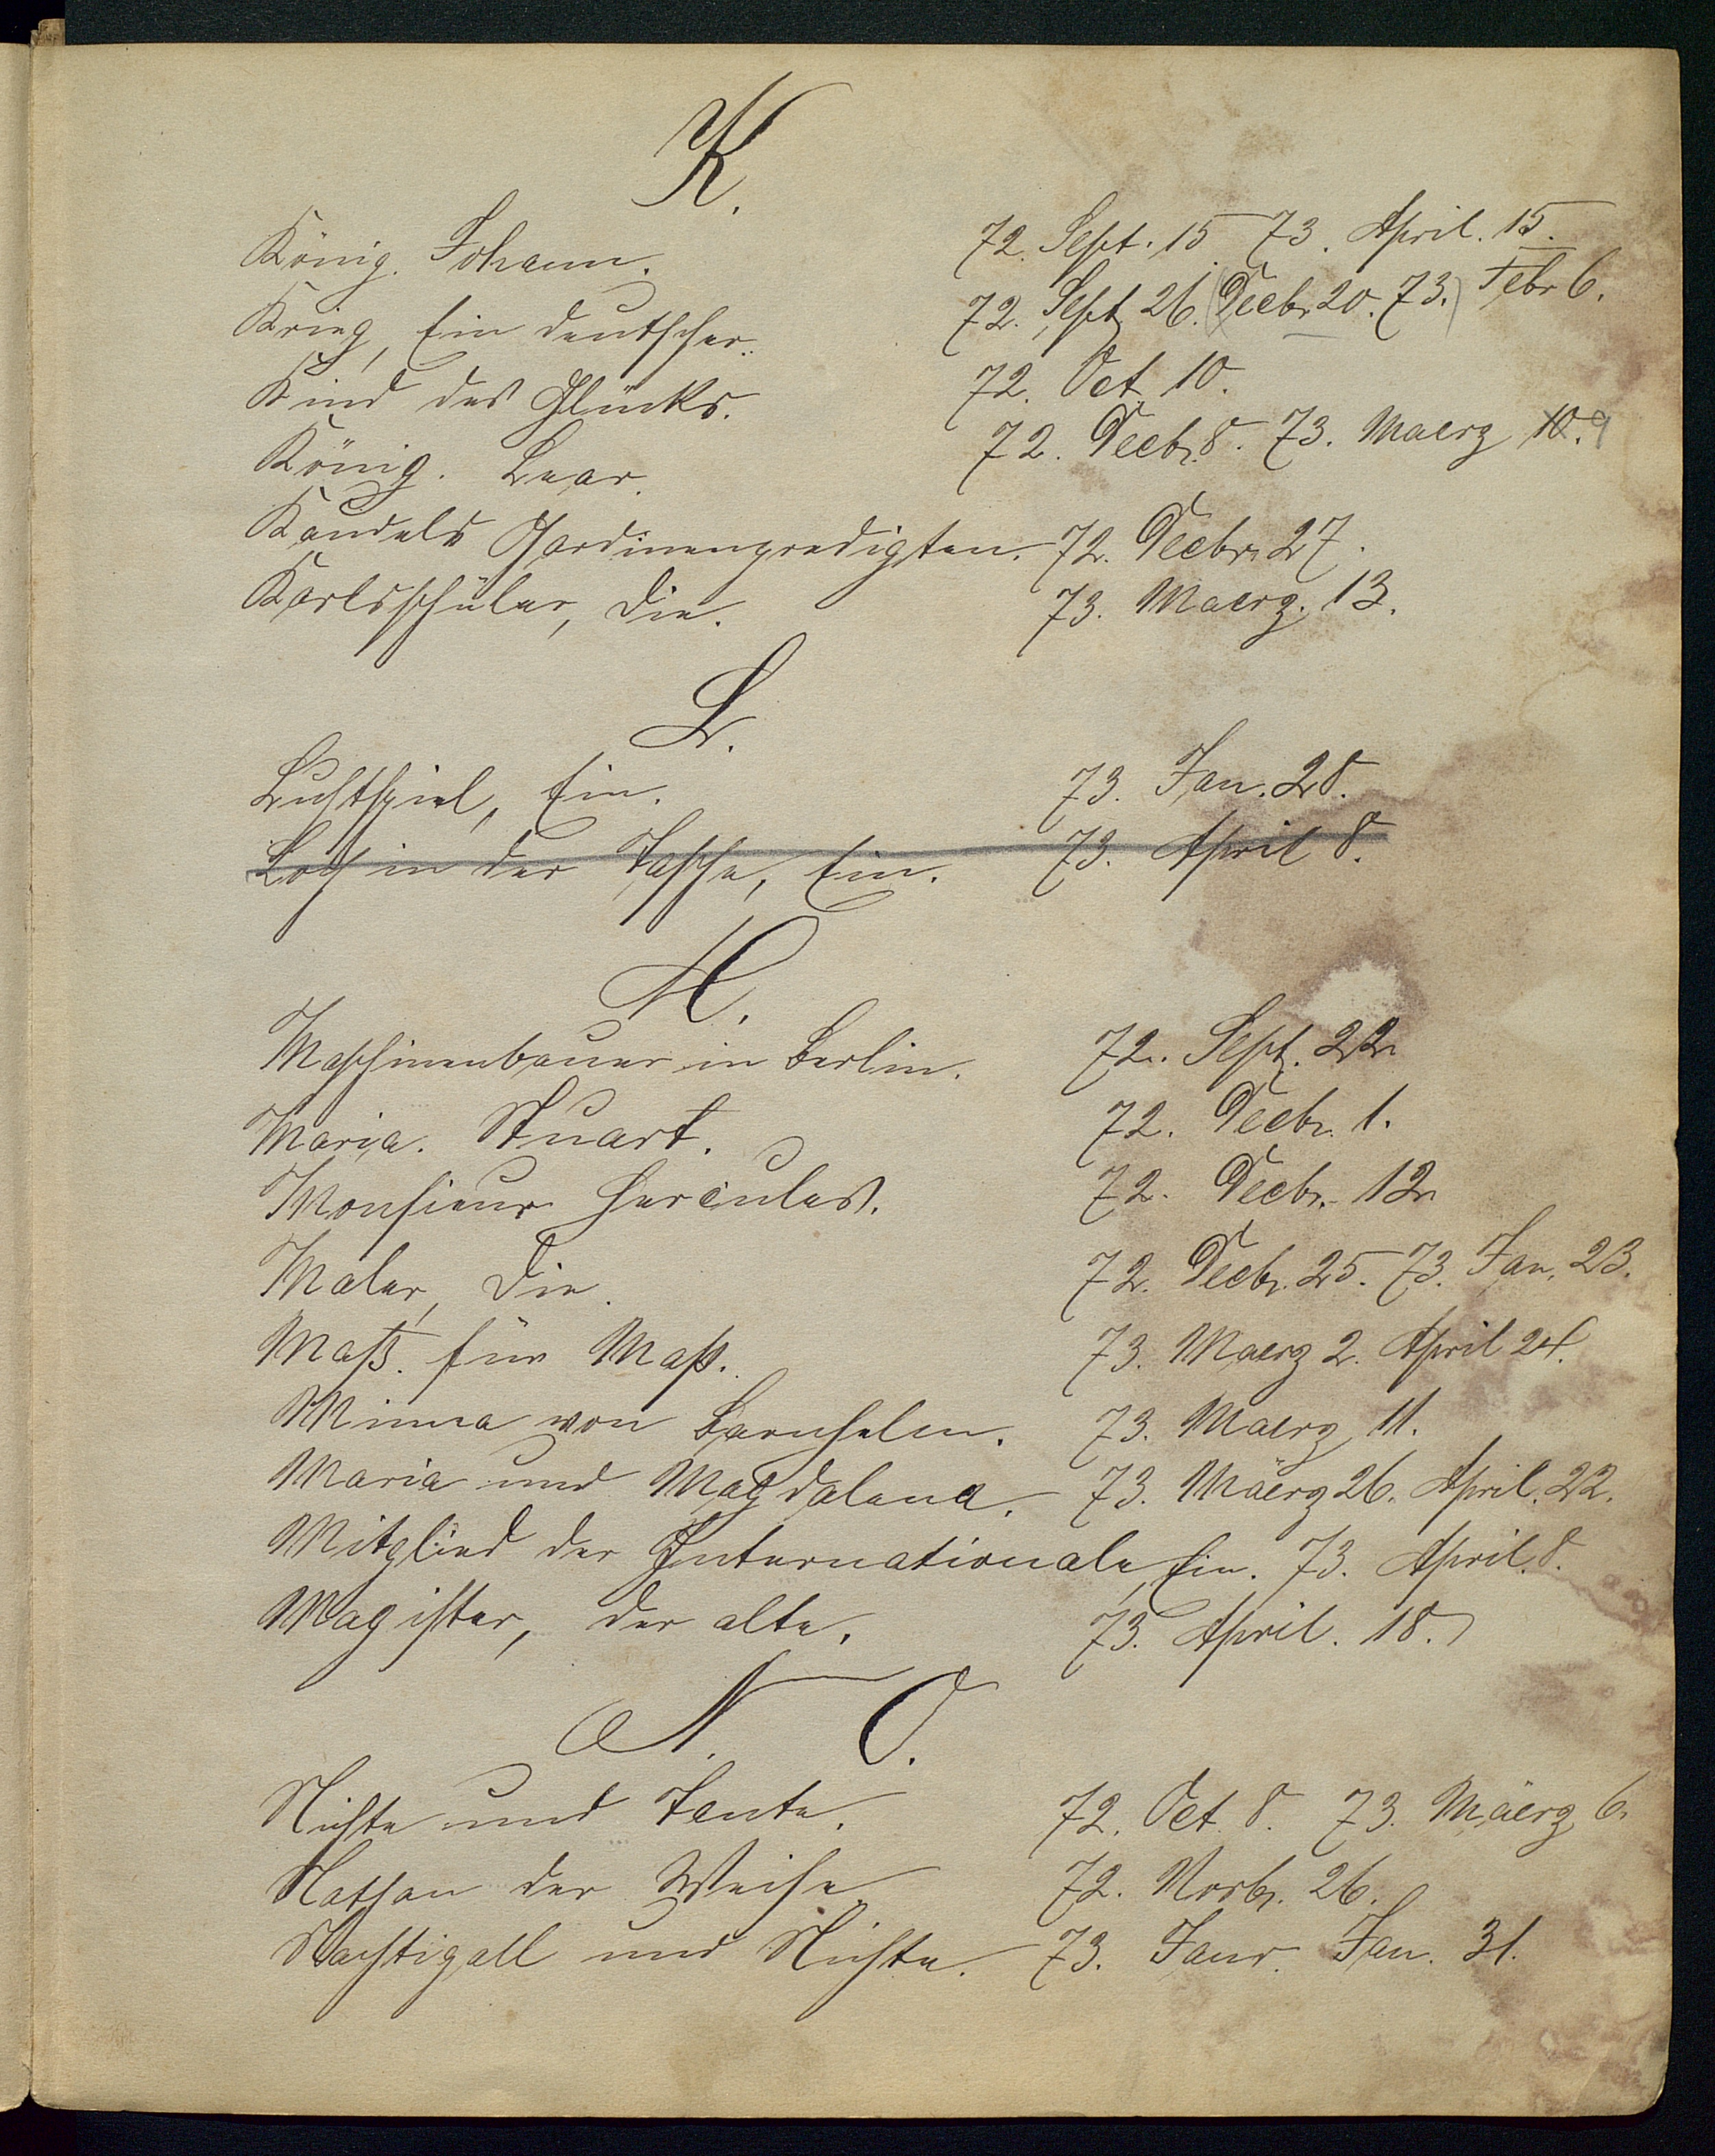 K.
König. Johann. 72. Sept. 15. 73. April. 15.
Krieg, Ein deutscher. 72. Sept. 26. (Decbr. 20. 73.) Febr 6.
Kind des Glücks. 72. Oct. 10.
König. Lear. 72. Decbr. 8. 73. Maerz 10. 9
Kaudels Gardinenpredigten. 72. Decbr. 27.
Karlsschüler, Die. 73. Maerz. 13.
L.
Lustspiel, Ein. 73. Jan. 28.
Loch in der Tasche, Ein. 73. April 8.
M.
Maschinenbauer in Berlin. 72. Sept. 22.
Maria. Stuart. 72. Decbr. 1.
Monsieur Hercules. 72. Decbr. 12.
Maler, Die. 72. Decbr. 25. 73. Jan. 23.
Maß. für Maß. 73. Maerz 2. April 24.
Minna von Barnhelm. 73. Maerz 11.
Maria und Magdalena. 73. Mäerz 26. April. 22.
Mitglied der Internationale, Ein. 73. April. 8.
Magister, der alte. 73. April. 18.
N. O.
Nichte und Tante. 72. Oct. 8. 73. Mäerz 6.
Nathan der Weise 72. Novbr. 26.
Nachtigall und Nichte. 73. Janr. Jan. 31.